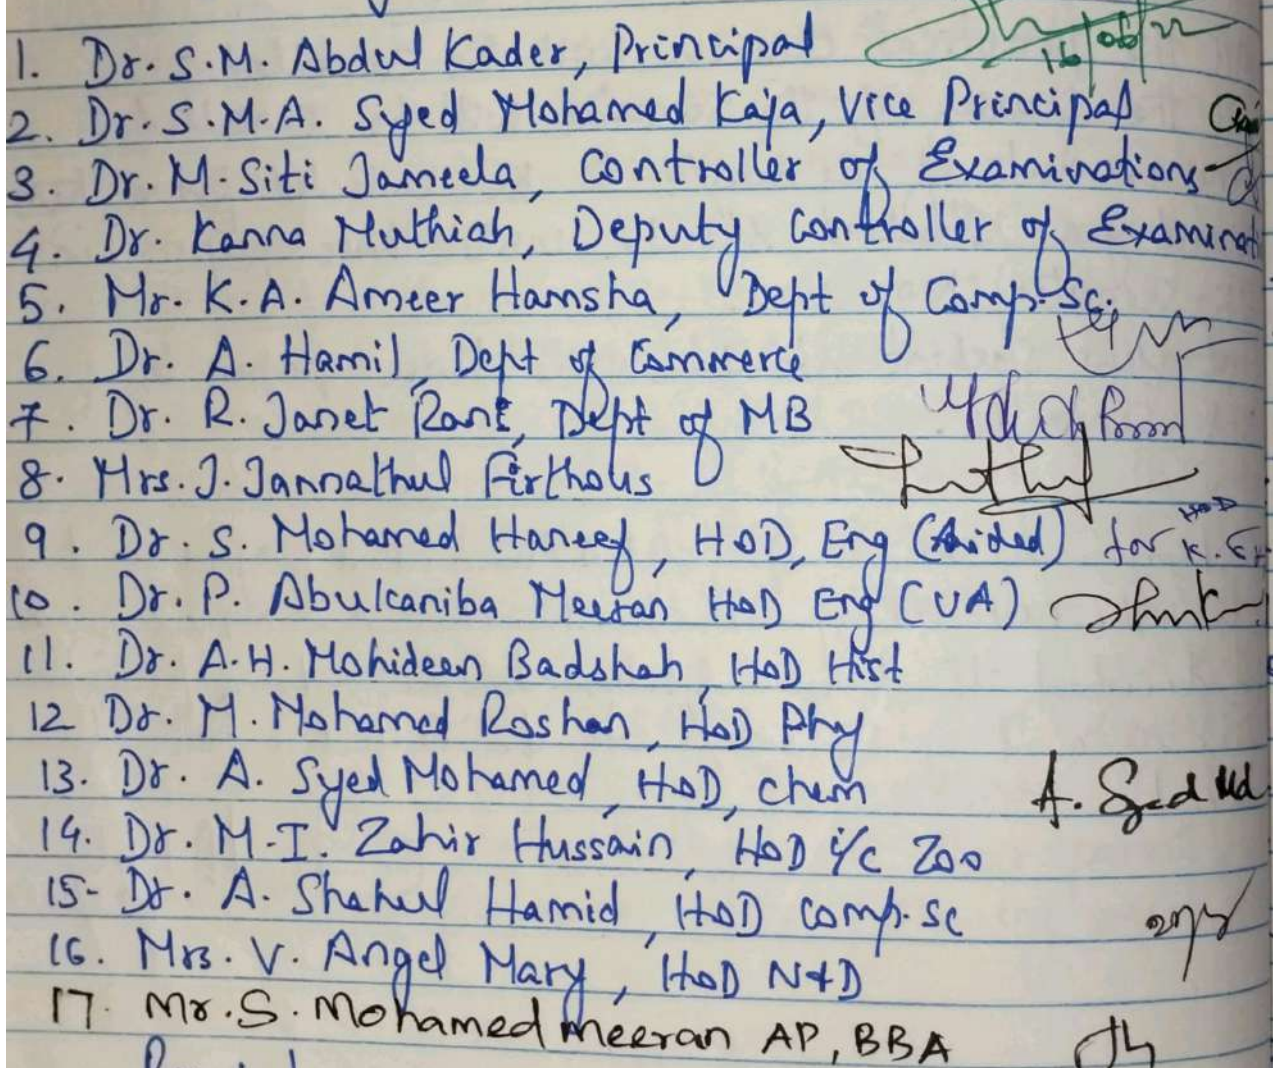 1. Dr. S.M. Abdul Kader, Principal 16/06/22
2. Dr. S.M.A. Syed Mohamed Kaja, Vice Principal
3. Dr. M. Siti Jameela, Controller of Examinations
4. Dr. Kanna Muthiah, Deputy Controller of Examinat
5. Mr. K.A. Ameer Hamsha, Dept of Comp. Sc.
6. Dr. A. Hamil, Dept of Commerce
7. Dr. R. Janet Rani, Dept of MB
8. Mrs. J. Jannathul Firthous
9. Dr. S. Mohamed Haneef, HOD, Eng (Aided) for HOD
10. Dr. P. Abulcaniba Meeran HOD Eng (UA)
11. Dr. A.H. Mohideen Badshah, HOD Hist
12 Dr. M. Mohamed Roshan, HOD Phy
13. Dr. A. Syed Mohamed, HOD, Chem A. Syed Md.
14. Dr. M.I. Zahir Hussain, HOD i/c Zoo
15- Dr. A. Shahul Hamid, HOD Comp. Sc
16. Mrs. V. Angel Mary, HOD N&D
17. Mr. S. Mohamed meeran AP, BBA